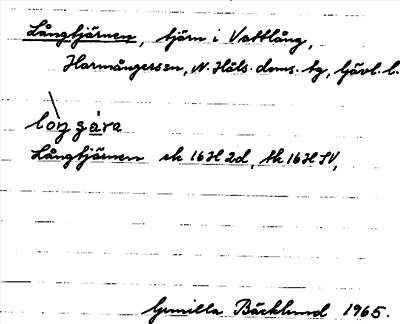 Långtjärnen, tjärn i Vattlång,
Harmångers sn, N. Häls. doms. tg, Gävl. l.
Långtjärnen ek 16H 2d, tk 16H SV,
Gunilla Bäcklund 1965.